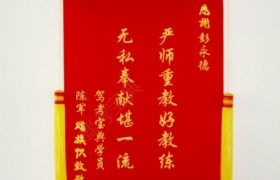 感谢彭永德
严师重教好教练
无私奉献堪一流
驾考宝典学员
陈军 赠旗帜致敬